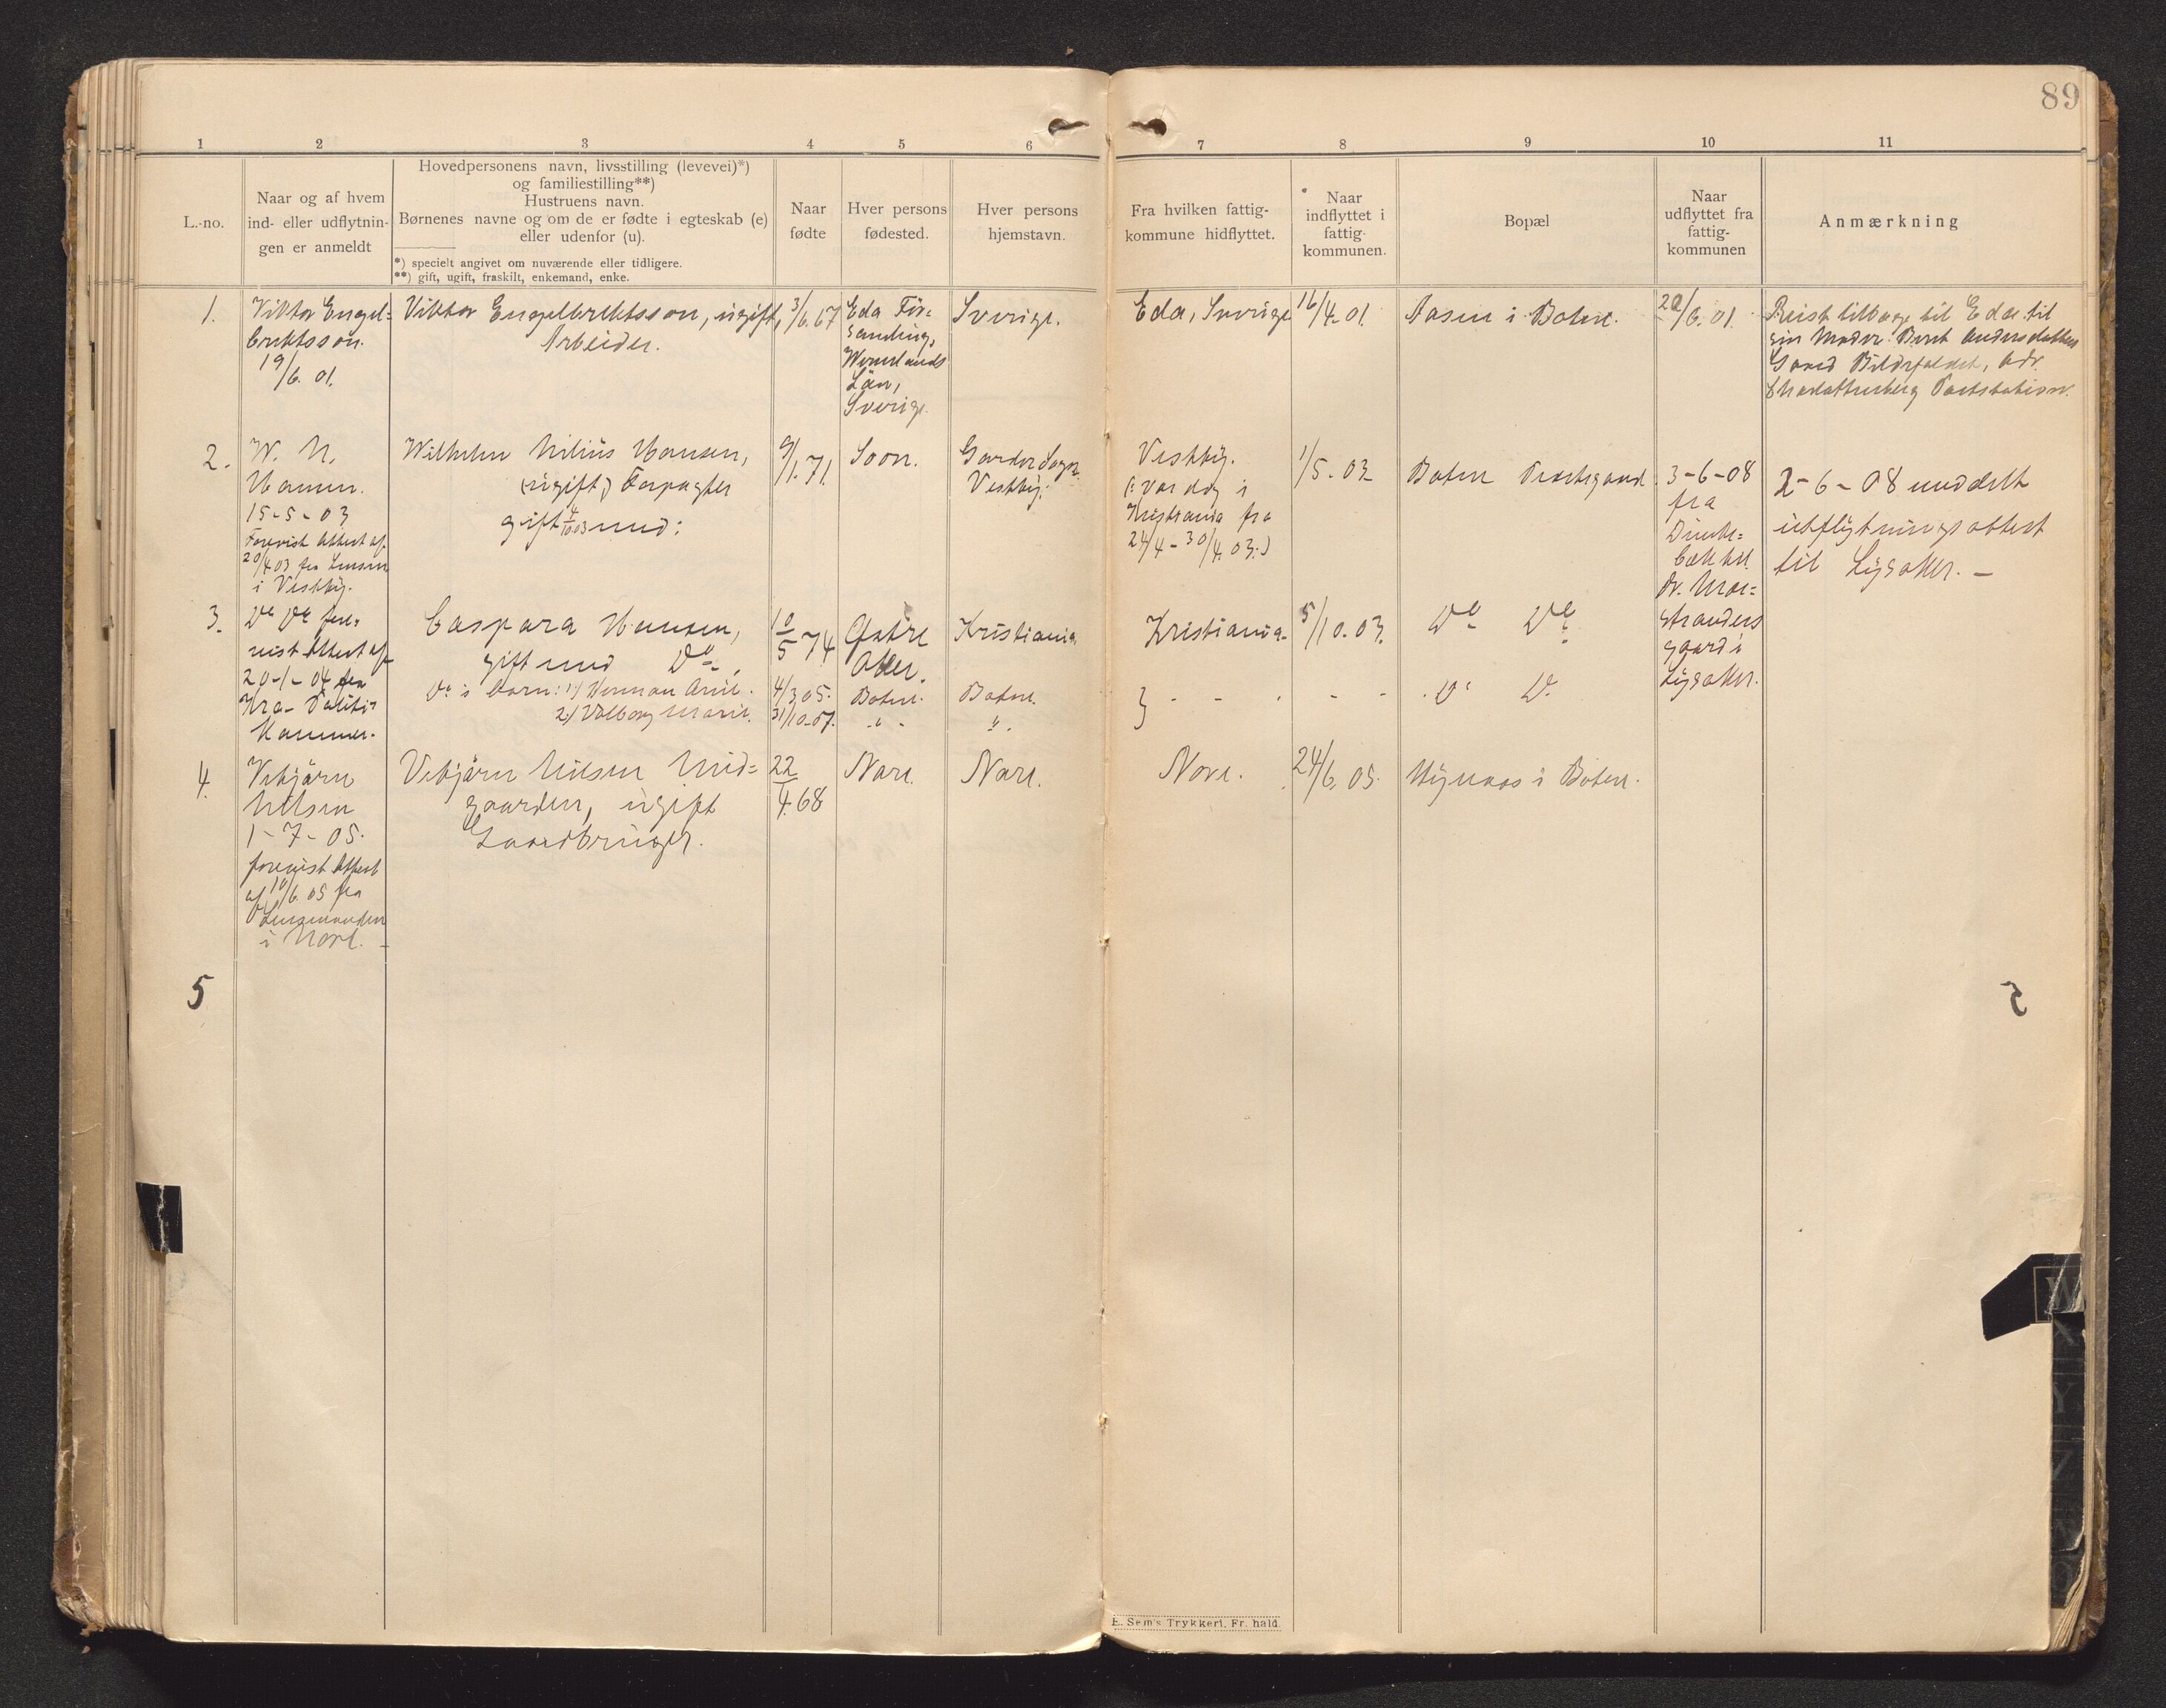 89
1 2 3 4 5 6 7 8 9 10 11
L.-no.
Naar og af hvem
ind- eller udflytnin-
gen er anmeldt
Hovedpersonens navn, livsstilling (levevei)*)
og familiestilling**)
Hustruens navn.
Børnenes navne og om de er fødte i egteskab (e)
eller udenfor (u).
*) specielt angivet om nuværende eller tidligere.
**) gift, ugift, fraskilt, enkemand, enke.
Naar
fødte
Hver persons
fødested.
Hver persons
hjemstavn.
Fra hvilken fattig-
kommune hidflyttet.
Naar
indflyttet i
fattig-
kommunen.
Bopæl
Naar
udflyttet fra
fattig-
kommunen
Anmærkning
1.
Viktor Engel=
brektsson.
19/6. 01.
Viktor Engelbrektsson, ugift,
Arbeider.
3/6. 67
Eda För=
samling,
Wermlands
Län,
Sverige.
Sverige.
Eda, Sverige
16/4. 01.
Aasen i Botne.
20/6. 01.
Reist tilbage til Eda til
sin Moder Berit Andersdatter
Gaard
2.
W. N.
Hansen.
15-5-03
Forevist Attest af
20/4 03 fra Lensm
i Vestby.
Wilhelm Nilius Hansen,
(ugift,) Forpagter
gift 4/10 03 med:
9/1. 71.
Soon.
Garder Sogn
Vestby.
Vestby.
(: var dog i
Kristiania fra
24/4 - 30/4. 03:)
1/5 - 03
Botne Prestegaard
3-6-08
fra
Bækkel
gaard i
Lysaker.
2-6-08 meddelt
utflytningsattest
til Lysaker. -
3.
Do Do fore=
vist Attest af
20-1-04 fra
Kra- Politi-
kammer.
Caspara Hansen,
gift med Do.
Do's Barn: 1) Herman Arne.
2) Valborg Marie.
10/5 74
4/3 05.
31/10-07.
Østre
Aker.
Botne.
" -
Kristiania.
Botne.
".
Kristiania-
} - - - - -
5/10. 03.
Do Do
Do Do
4.
Vebjörn
Nilsen
1-7-05.
forevist Attest
af 10/6. 05 fra
Lensmanden
i Nore. -
Vebjörn Nilsen Mid=
gaarden, ugift
Gaardbruger.
22/4. 68
Nore.
Nore.
Nore.
24/6. 05.
i Botne.
5
5
E. Sem's Trykkeri, Fr. hald.
W
X
Y